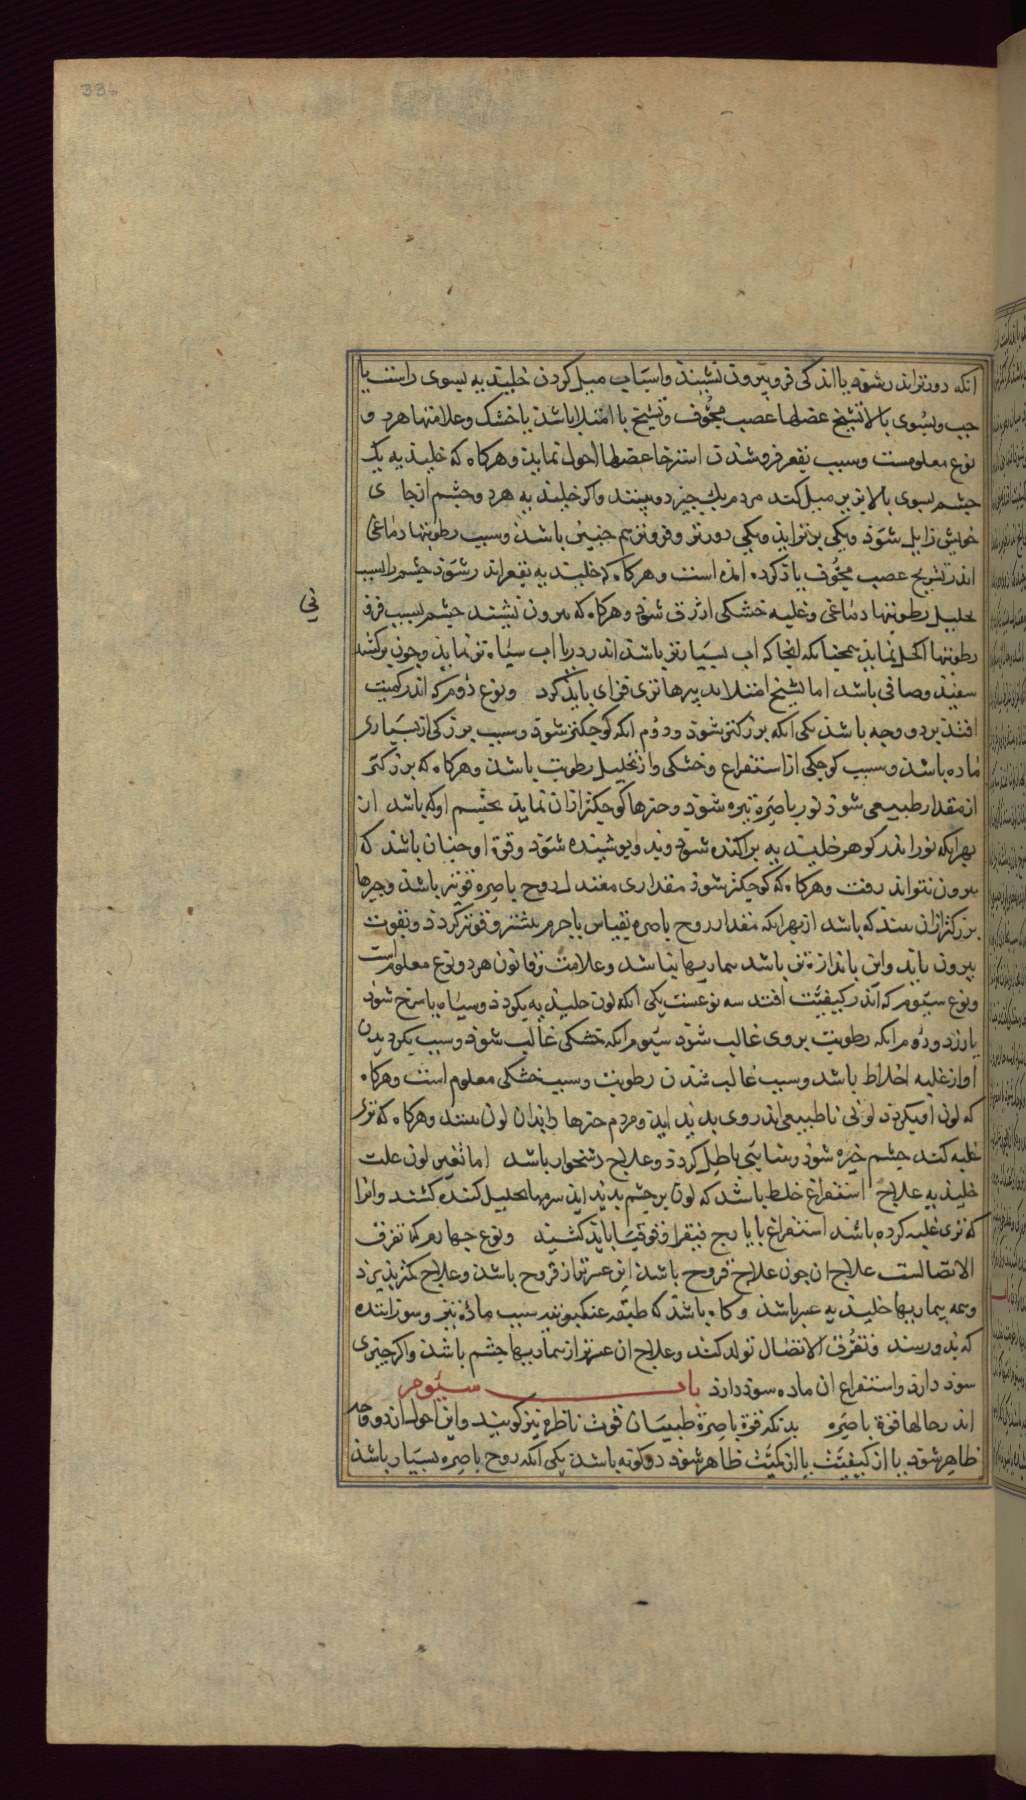 336
انکه دورتر اندر رشوذ یا اندکی فروتر و بیرون نشیند واسباب میل کردن جلیدیه بسوی راست یا
چپ وبسوی بالا تشنج عضلها عصب مجوف و تشنج یا امتلا باشد یا خشک وعلامتها هر دو
نوع معلومست وسبب بقعر فروشدن استرخا عضلها احول نماید وهرکاه که جلیدیه یک
چشم بسوی بالا یا زیر میل کند مردم یک چیز دو بینند واکر جلیدیه هر دو چشم از جای
خویش زایل شوذ ویکی برتر آید ویکی دورتر وفروتر هم چنین باشد وسبب رطوبتها دماغی
اندر تشریح عصب مجوف یاذ کرده امده است وهرکاه که جلیدیه بقعر اندر رشوذ چشم را بسبب
تحلیل رطوبتها دماغی وغلبه خشکی ازرق شوذ وهرکاه که بیرون نشیند چشم بسبب فزونی
رطوبتها اکحل نماید همچنانکه انجا که اب بسیارتر باشد اندر دریا اب سیاه تر نماید وچون برکشند
سفید وصافی باشد اما تشنج امتلا تدبیرها تری فزای باید کرد ونوع دوم که اندر کمیت
افتد بر دو وجه باشد یکی انکه بزرکتر شوذ ودوم انکه کوچکتر شوذ وسبب بزرکی از بسیاری
ماده باشد وسبب کوچکی از استفراغ وخشکی واز تحلیل رطوبت باشد وهرکاه که بزرکتر
از مقدار طبیعی شوذ نور باصره تیره شوذ وچیزها کوچکتر از ان نماید بچشم او که باشد از
بهر انکه نور اندر کوهر جلیدیه پراکنده شوذ و پوشیده شوذ وقوة او چنان باشد که
بیرون نتواند رفت وهرکاه که کوچکتر شوذ مقداری معتدل روح باصره قویتر باشد وچیزها
بزرکتر از ان بیند که باشد از بهر انکه مقدار روح باصره بقیاس با جرم بیشتر وقویتر کردد وبقوت
بیرون یاید واین باندازه تن باشد بیماریها نباشد وعلامت وقانون هر دو نوع معلوم است
ونوع سیوم که اندر کیفیت افتد سه نوعست یکی انکه لون جلیدیه بکردد وسیاه یا سرخ شوذ
یا زرد ودوم انکه رطوبت بروی غالب شوذ سیوم انکه خشکی غالب شوذ وسبب بکردیدن
او از غلبه اخلاط باشد وسبب غالب شدن رطوبت وسبب خشکی معلوم است وهرکاه
که لون او بکردد لونی نا طبیعی اندر وی پدید اید ومردم چیزها را بدان لون بیند وهرکاه که تری
غلبه کند چشم خیره شوذ وبینایی باطل کردد وعلاج دشخوار باشد اما تغیر لون علت
جلیدیه علاج استفراغ خلط باشد که لون بر چشم پدید اید سرمها تحلیل کننده کشند وانرا
که تری غلبه کرده باشد استفراغ بایارج فیقرا وقوقیا باید کشید ونوع چهارم که تفرق
الاتصالست علاج ان چون علاج قروح باشد این عسرتر از قروح باشد وعلاج کمتر پذیرد
وهمه بیماریها جلیدیه عسر باشد وکاه باشد که طبقه عنکبوتیه سبب ماده تیز وسوزاننده
که بدو رسد وتفرق الاتصال تولد کند وعلاج ان عسرتر از بیماریها چشم باشد واکر چیزی
سوذ دارد واستفراغ ان ماده سوذ دارد باب سیوم
اندر حالها قوة باصره بدانکه قوة باصره طبیبان قوت ناظره نیز کویند واین احوال از دو وجه
ظاهر شوذ یا از کیفیت یا از کمیت ظاهر شوذ دو کونه باشد یکی انکه روح باصره بسیار باشد
نی